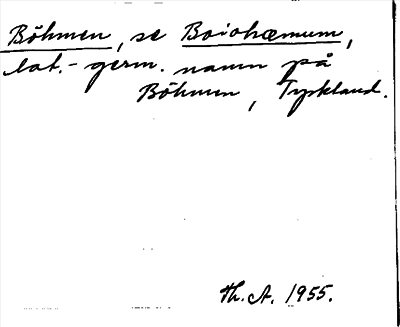 Böhmen, se Boiohæmum,
lat.-germ. namn på
Böhmen, Tyskland.
Th. A. 1955.